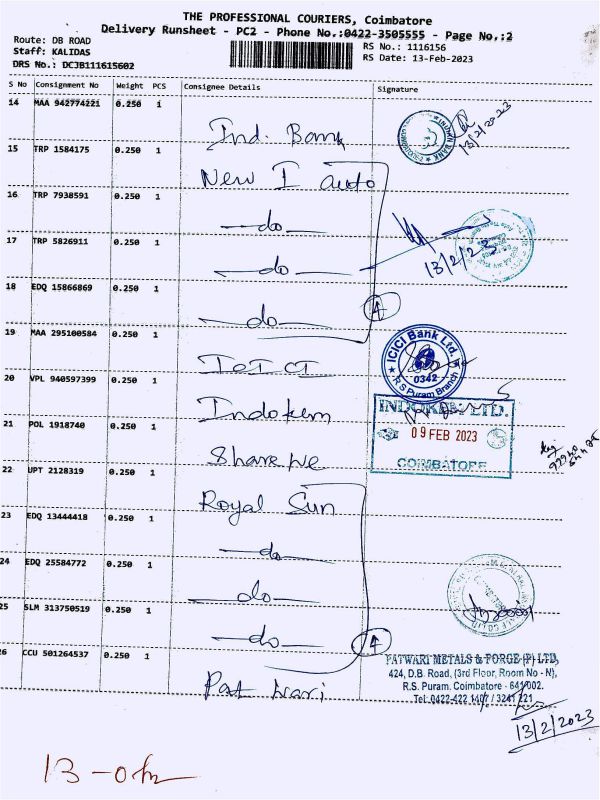 THE PROFESSIONAL COURIERS, Coimbatore
Delivery Runsheet - PC2 - Phone No.:0422-3505555 - Page No.:2
Route: DB ROAD
Staff: KALIDAS
DRS No.: DCJB111615602
RS No.: 1116156
RS Date: 13-Feb-2023
S No Consignment No Weight PCS Consignee Details Signature
14 MAA 942774221 0.250 1 Ind. Bank
INDIAN BANK
13/2/2023
15 TRP 1584175 0.250 1 New I auto
16 TRP 7938591 0.250 1 —do—
17 TRP 5826911 0.250 1 —do—
13/2/23
18 EDQ 15866869 0.250 1 —do—
4
19 MAA 295100584 0.250 1 ICICI
ICICI Bank Ltd.
0342
R S Puram Branch
20 VPL 940597399 0.250 1 Indokem
INDOKEM LTD.
09 FEB 2023
COIMBATORE
21 POL 1918740 0.250 1 Share
22 UPT 2128319 0.250 1 Royal Sun
23 EDQ 13444418 0.250 1 —do—
24 EDQ 25584772 0.250 1 —do—
25 SLM 313750519 0.250 1 —do—
4
26 CCU 501264537 0.250 1 Patwari
PATWARI METALS & FORGE (P) LTD,
424, D.B. Road, (3rd Floor, Room No - N),
R.S. Puram. Coimbatore - 641 002.
Tel: 0422-422 1407 / 3241 221
13/2/2023